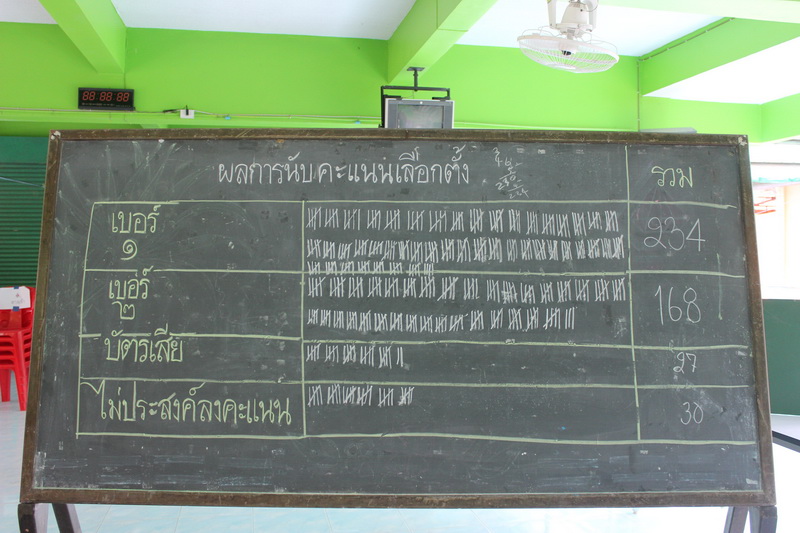 ผลการนับคะแนนเลือกตั้ง
รวม
เบอร์
๑
234
เบอร์
๒
168
บัตรเสีย
27
ไม่ประสงค์ลงคะแนน
30
88:88:88